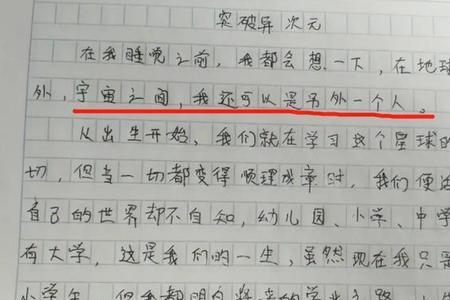 突破异次元
在我睡觉之前，我都会想一下，在地球
外，宇宙之间，我还可以是另外一个人。
从出生开始，我们就在学习这个星球的
切，但当一切都变得顺理成章时，我们便
自己的世界却不自知，幼儿园、小学、中学
有大学，这是我们的一生，虽然现在我只是
小学生，但我都明白